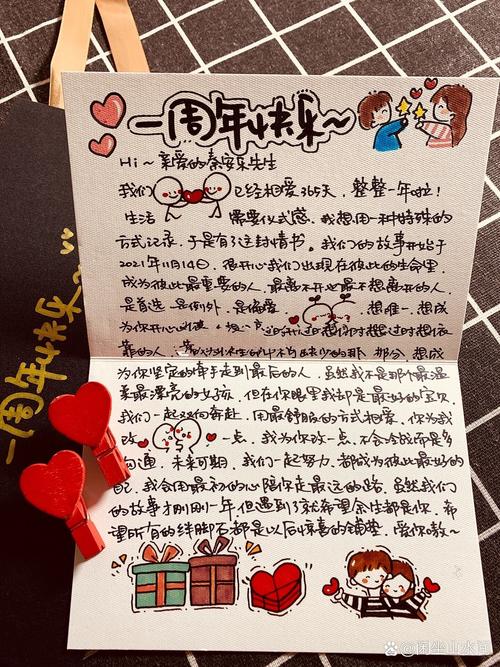 一周年快乐~
Hi~亲爱的秦安乐先生
我们已经相爱365天,整整一年啦!
生活需要仪式感,我想用一种特殊的
方式记录,于是有了这封情书。我们的故事开始于
2021年11月14日,很开心我们出现在彼此的生命里,
成为彼此最重要的人,最离不开也最不想离开的人,
是首选 是例外 是偏爱,想唯一,想成
为你开心
靠的人,那部分,想成
为你坚定的牵手走到最后的人,虽然我不是那个最温
柔最漂亮的女孩,但在你眼里我却是最好的宝贝,
我们一起双向奔赴,用最舒服的方式相爱,你为我
改一点,我为你改一点,不会冷战而是多
沟通,未来可期,我们一起努力,都成为彼此最好的
自己,我会用最初的心陪你走最远的路,虽然我们
的故事才刚刚1年,但遇到了就希望余生都是你,希
望所有的绊脚石都是以后惊喜的铺垫,爱你嗷~
一周年快乐
闲坐山水间